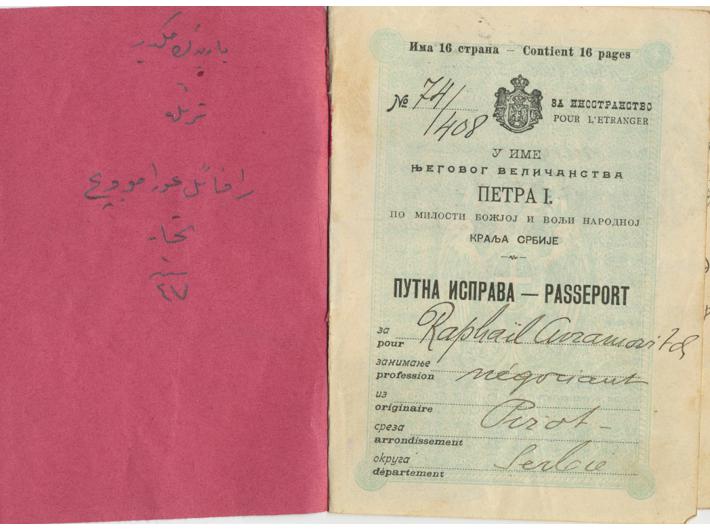 رافائل
٤٧
Има 16 страна – Contient 16 pages
№ 74/408
ЗА ИНОСТРАНСТВО
POUR L'ETRANGER
У ИМЕ
ЊЕГОВОГ ВЕЛИЧАНСТВА
ПЕТРА I.
ПО МИЛОСТИ БОЖЈОЈ И ВОЉИ НАРОДНОЈ
КРАЉА СРБИЈЕ
ПУТНА ИСПРАВА — PASSEPORT
за
pour Raphaïl Avramovitch
занимање
profession négociant
из
originaire Pirot –
среза
arrondissement
округа
département Serbie